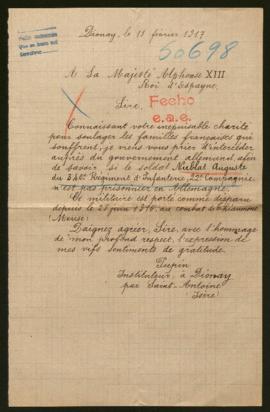 Dionay, le 11 février 1917
50698
A Sa Majesté Alphonse XIII
Roi d'Espagne,
Sire,
Fecho
e.a.e.
Connaissant votre inépuisable charité
pour soulager les familles françaises qui
souffrent, je viens vous prier d'intercéder
auprès du gouvernement allemand, afin
de savoir si le soldat Nublat Auguste
du 340e Régiment d'Infanterie, 22e Compagnie
n'est pas prisonnier en Allemagne.
Ce militaire est porté comme disparu
depuis le 28 juin 1916, au combat de
(Meuse)
Daignez agréer, Sire, avec l'hommage
de mon profond respect, l'expression de
mes vifs sentiments de gratitude.
Instituteur à Dionay
par Saint-Antoine
Isère)